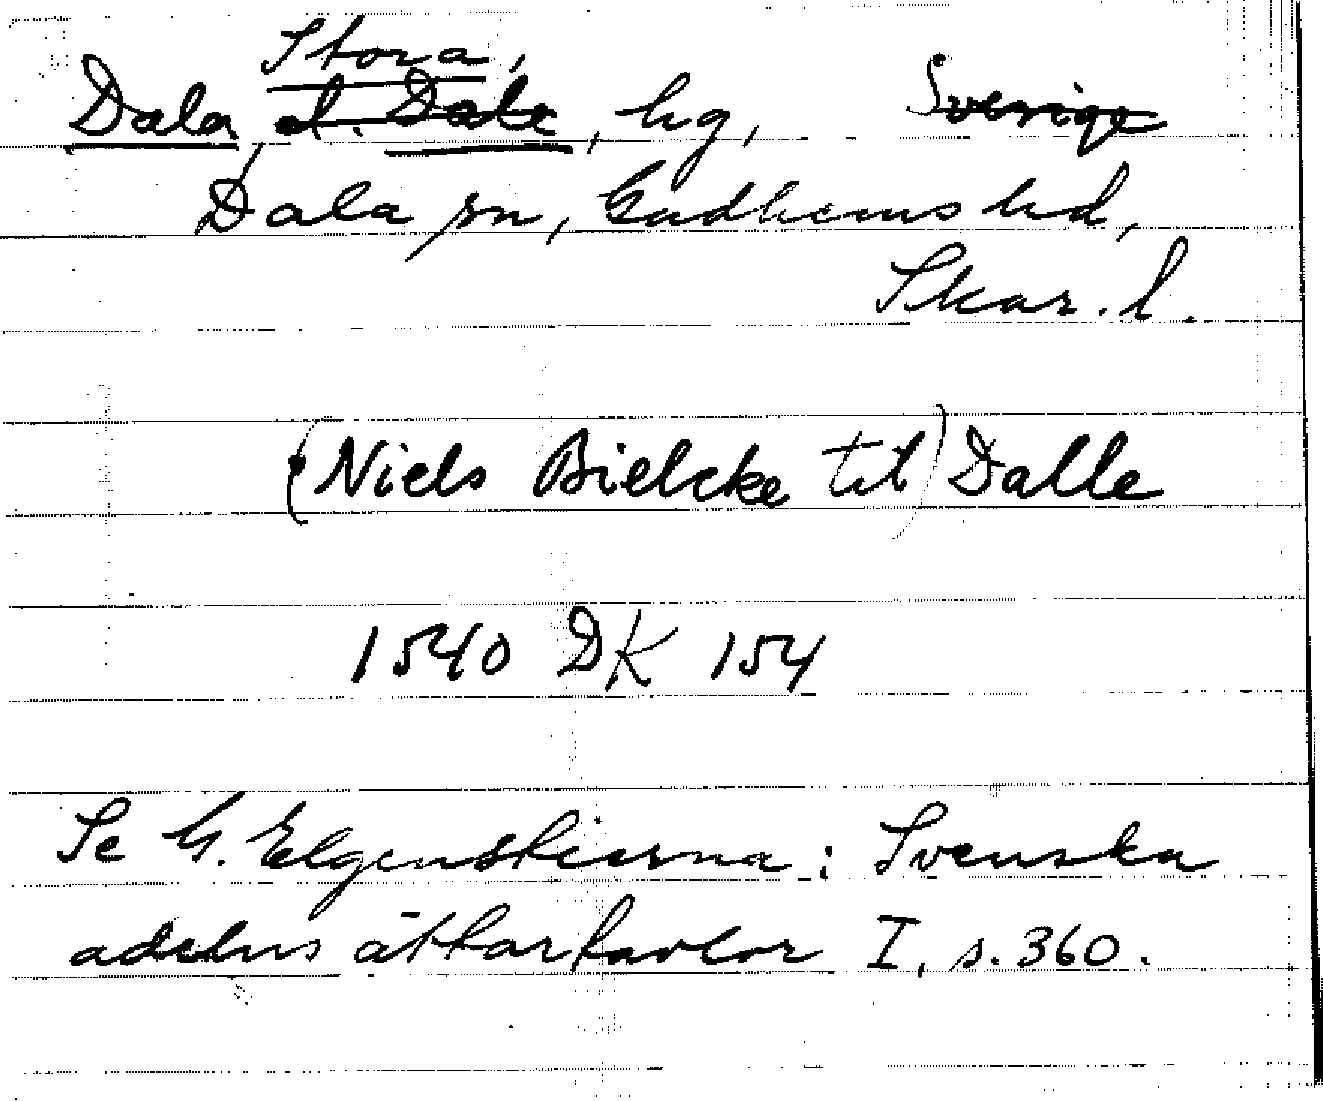 Stora,
Dala, el. Dale, hg, Sverige
Dala sn, Gudhems hd,
Skar. l.
(Niels Bielcke til) Dalle
1540 DK 154
Se G. Elgenstierna: Svenska
adelns ättartavlor I, s. 360.